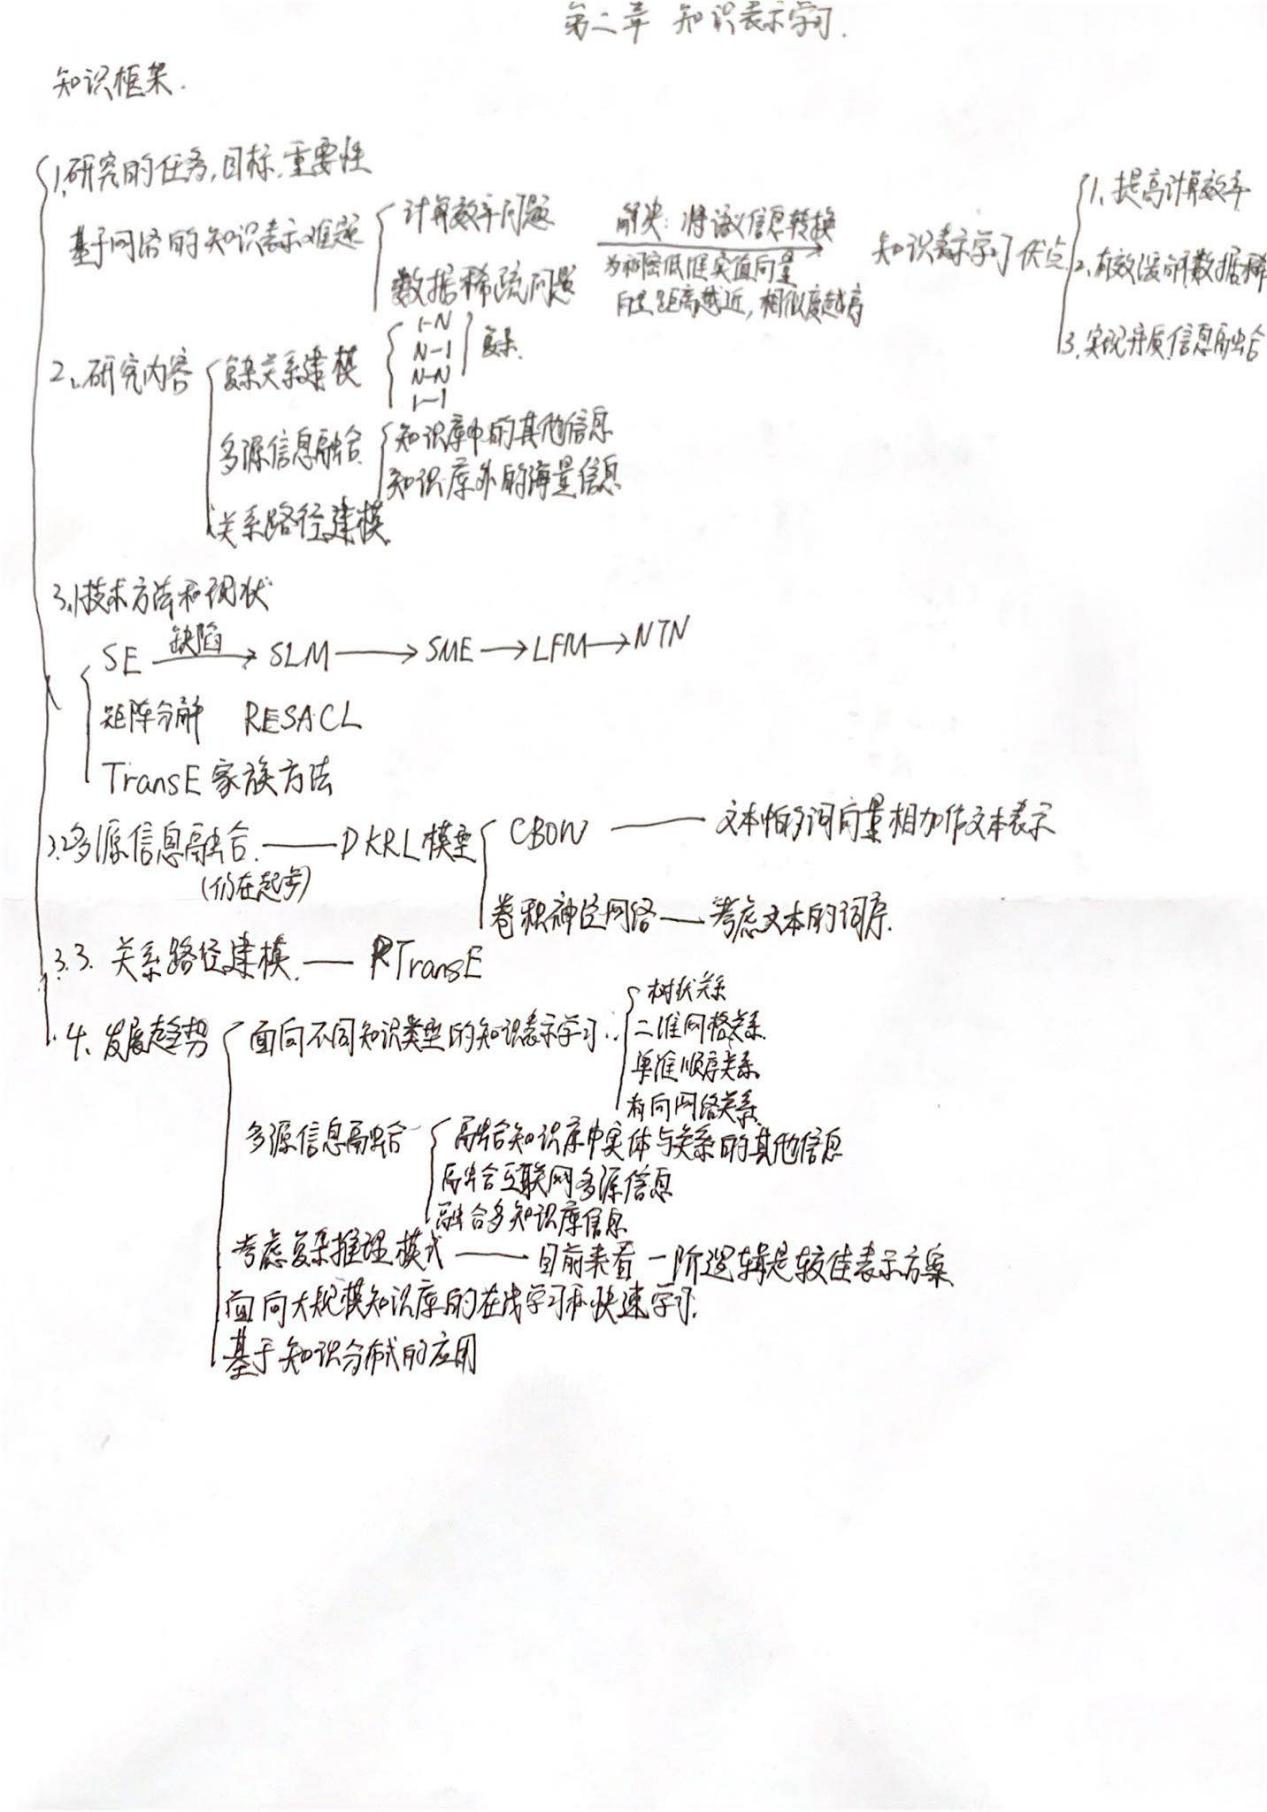 第二章 知识表示学习.
知识框架.
1.研究的任务,目标,重要性
基于网络的知识表示难题
计算效率问题
数据稀疏问题
解决: 将语义信息转换
为稠密低维实值向量
向量距离越近,相似度越高
知识表示学习优点
1.提高计算效率
2.有效缓解数据稀
3.实现异质信息融合
2.研究内容
复杂关系建模
1-N
N-1
N-N
1-1
复杂.
多源信息融合
知识库中的其他信息
知识库外的海量信息
关系路径建模
3.1技术方法和现状
SE 缺陷 → SLM → SME → LFM → NTN
矩阵分解 RESACL
TransE 家族方法
3.2多源信息融合. — DKRL模型
(仍在起步)
CBOW — 文本中的词向量相加作文本表示
卷积神经网络 — 考虑文本的词序.
3.3. 关系路径建模. — PTransE
4. 发展趋势
面向不同知识类型的知识表示学习.
树状关系
二维网格关系
单维顺序关系
有向网络关系
多源信息融合
融合知识库中实体与关系的其他信息
融合互联网多源信息
融合多知识库信息
考虑复杂推理模式 — 目前来看一阶逻辑是较佳表示方案
面向大规模知识库的在线学习和快速学习.
基于知识分布式的应用